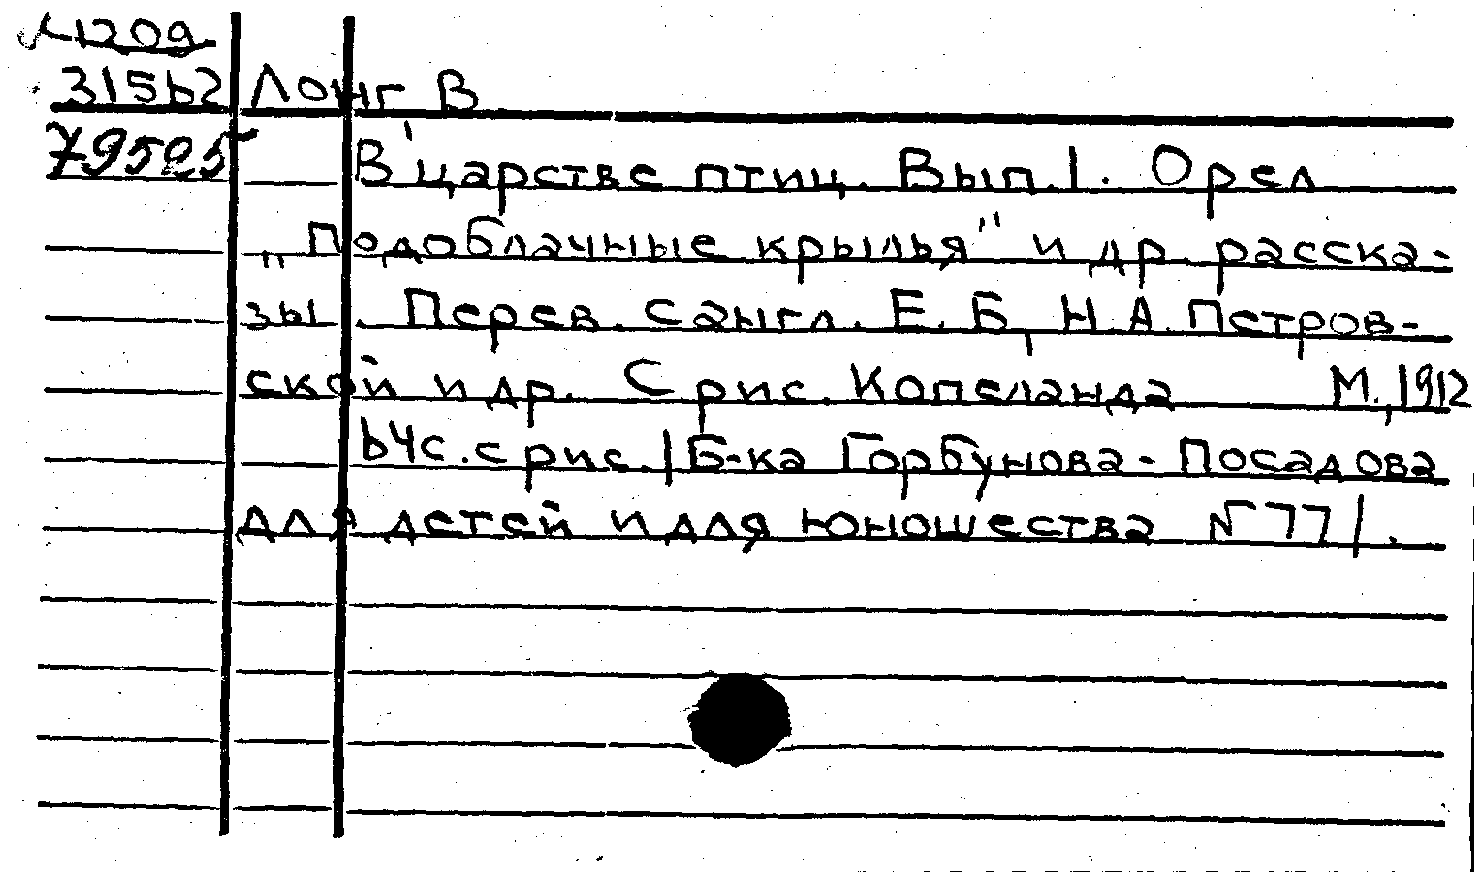 М 1209
315б2 Лонг В
795е5 В царстве птиц. Вып. 1. Орел
„Подоблачные крылья" и др. расска-
зы. Перев. с англ. Е. Б, Н. А. Петров-
ской и др. С рис. Копеланда М., 1912
64с. с рис. /Б-ка Горбунова-Посадова
для детей и для юношества №77/.